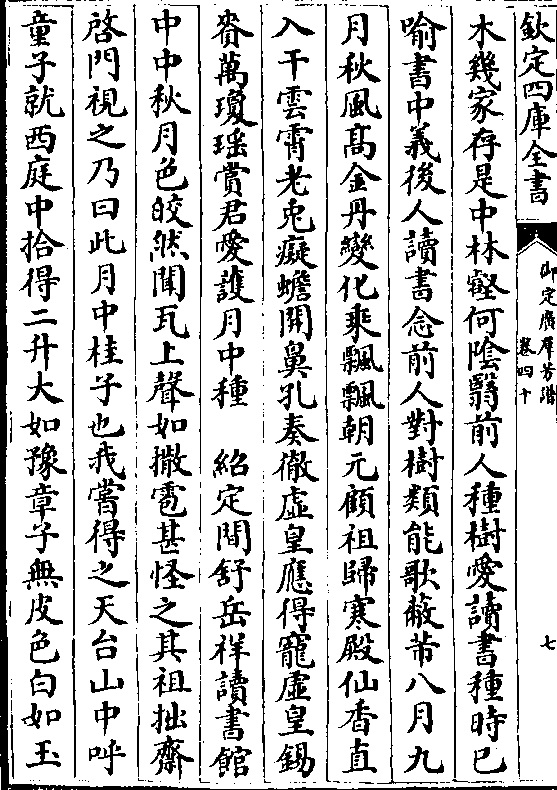 欽定四庫全書
御定廣羣芳譜
卷四十
七
木幾家存是中林壑何陰翳前人種樹愛讀書種時已
喻書中義後人讀書念前人對樹類能歌蔽芾八月九
月秋風高金丹變化乘飄飄朝元顧祖歸寒殿仙香直
入干雲霄老兎癡蟾開鼻孔奏徹虛皇應得寵虛皇錫
賚萬瓊瑶賞君愛護月中種　紹定間舒岳祥讀書館
中中秋月色皎然聞瓦上聲如撒雹甚怪之其祖拙齋
啓門視之乃曰此月中桂子也我嘗得之天台山中呼
童子就西庭中拾得二升大如豫章子無皮色白如玉